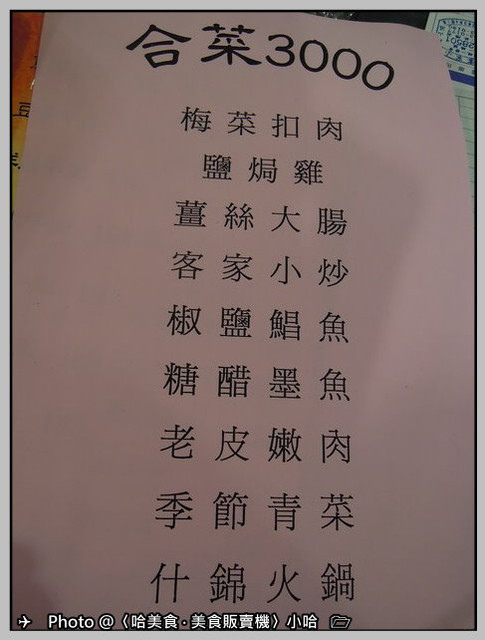 合菜3000
梅菜扣肉
鹽焗雞
薑絲大腸
客家小炒
椒鹽鯧魚
糖醋墨魚
老皮嫩肉
季節青菜
什錦火鍋
Photo @〈哈美食‧美食販賣機〉小哈